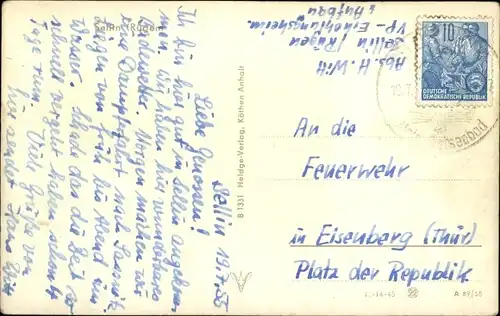 Sellin (Rügen)
Sellin 19.7.55
Liebe Genossen!
Ich bin hier gut in Sellin angekom-
men. Wir haben hier wunderbares
Badewetter. Morgen machen wir
eine Dampferfahrt nach Sassnitz.
Liegen von früh bis Abend im
Wasser. Schade das die Zeit so
schnell vergeht haben schon 6
Tage rum. Viele Grüße von
hier sendet
B 1331 Heldge-Verlag, Köthen Anhalt
Abs. H. Witt
Sellin/Rügen
VP-Erholungsheim
Aufbau
10
DEUTSCHE
DEMOKRATISCHE REPUBLIK
An die
Feuerwehr
in Eisenberg (Thür)
Platz der Republik
A 89/55